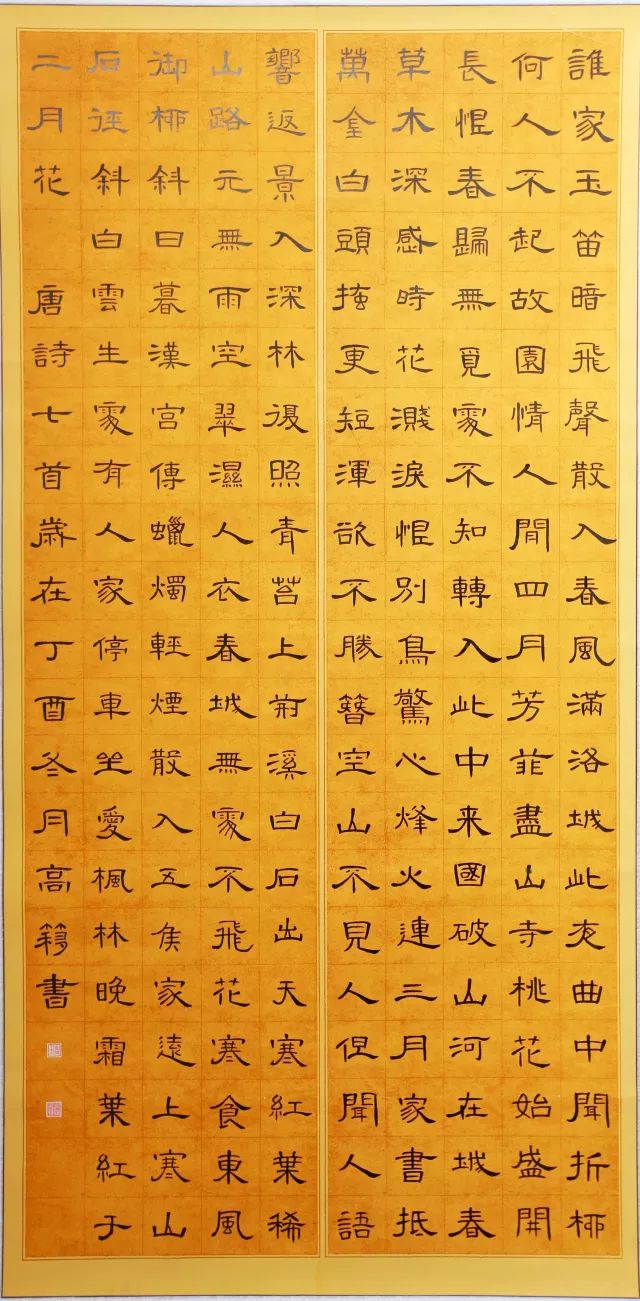 誰家玉笛暗飛聲散入春風滿洛城此夜曲中聞折柳
何人不起故園情人間四月芳菲盡山寺桃花始盛開
長恨春歸無覓處不知轉入此中来國破山河在城春
草木深感時花濺淚恨別鳥驚心烽火連三月家書抵
萬金白頭搔更短渾欲不勝簪空山不見人但聞人語
響返景入深林復照青苔上荊溪白石出天寒紅葉稀
山路元無雨空翠濕人衣春城無處不飛花寒食東風
御柳斜日暮漢宮傳蠟燭輕煙散入五侯家遠上寒山
石徑斜白雲生處有人家停車坐愛楓林晚霜葉紅于
二月花 唐詩七首歲在丁酉冬月高書